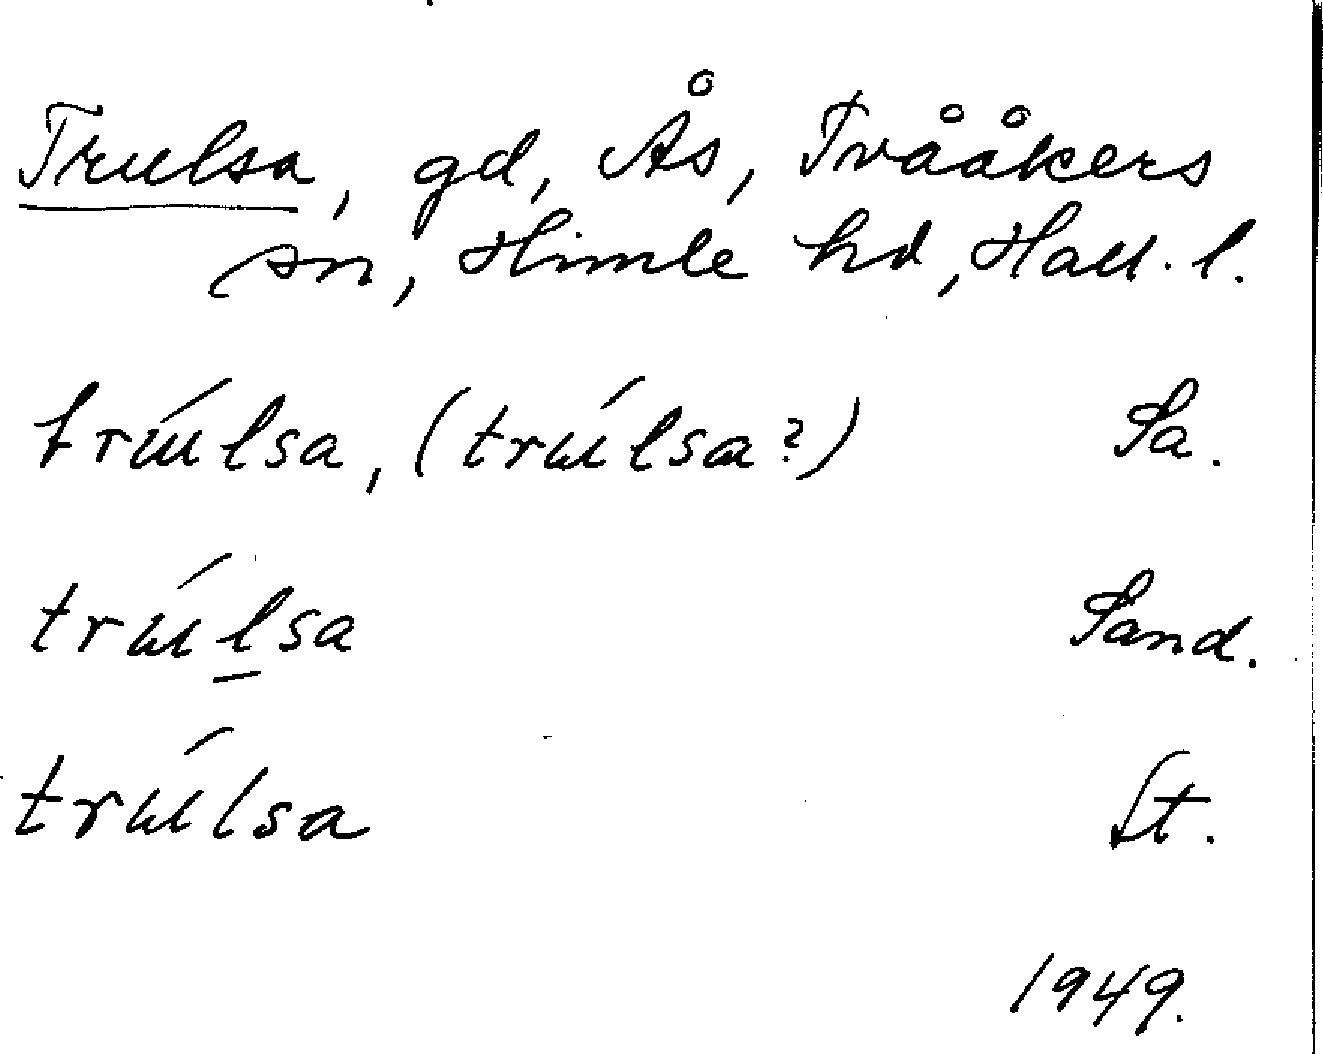 Trulsa, gd, Ås, Tvååkers
sn, Himle hd, Hall. l.
trɯ́lsa, (trɯ́lsɑ?) Sa.
trɯ́l̲sa Sand.
trɯ́lsa St.
1949.